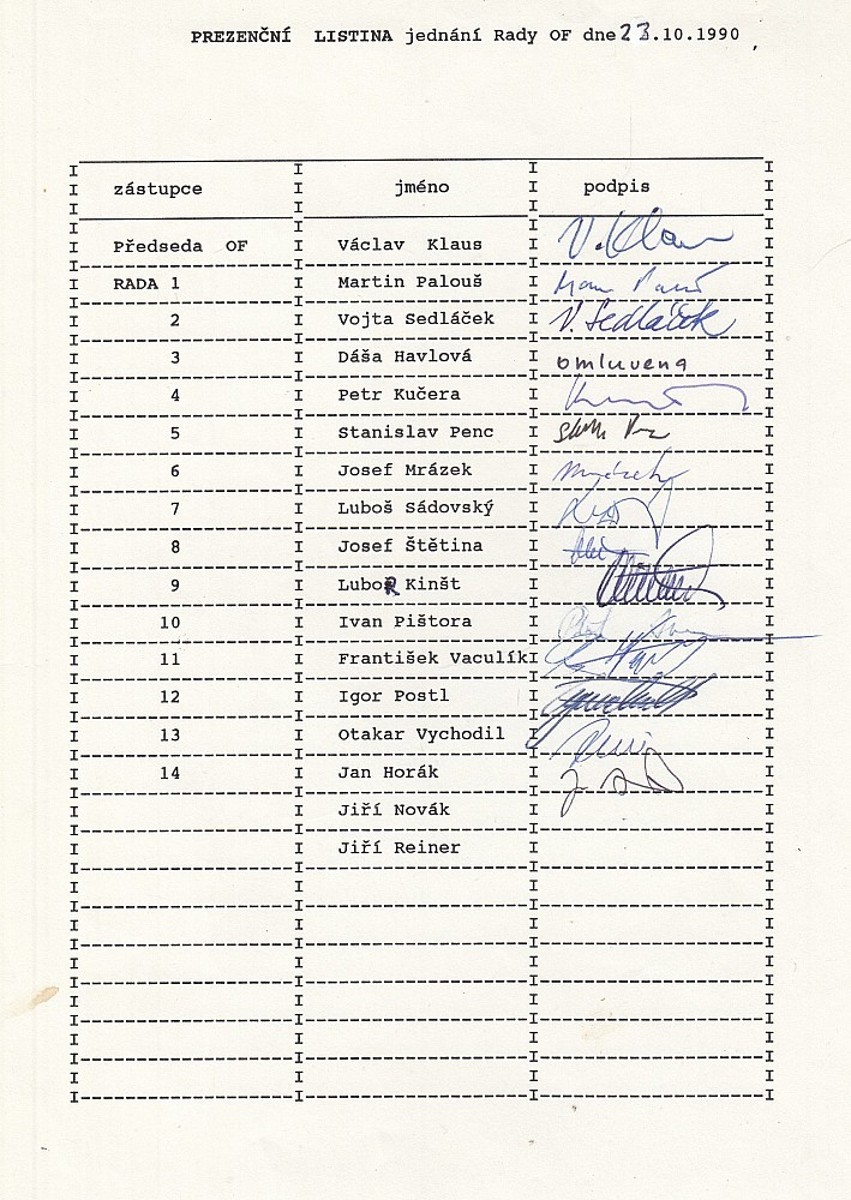 PREZENČNÍ LISTINA jednání Rady OF dne 23.10.1990
zástupce jméno podpis
Předseda OF Václav Klaus V. Klaus
RADA 1 Martin Palouš
2 Vojta Sedláček V. Sedláček
3 Dáša Havlová omluvena
4 Petr Kučera
5 Stanislav Penc
6 Josef Mrázek Mrázek
7 Luboš Sádovský
8 Josef Štětina
9 LuboR Kinšt
10 Ivan Pištora
11 František Vaculík
12 Igor Postl
13 Otakar Vychodil
14 Jan Horák
Jiří Novák
Jiří Reiner